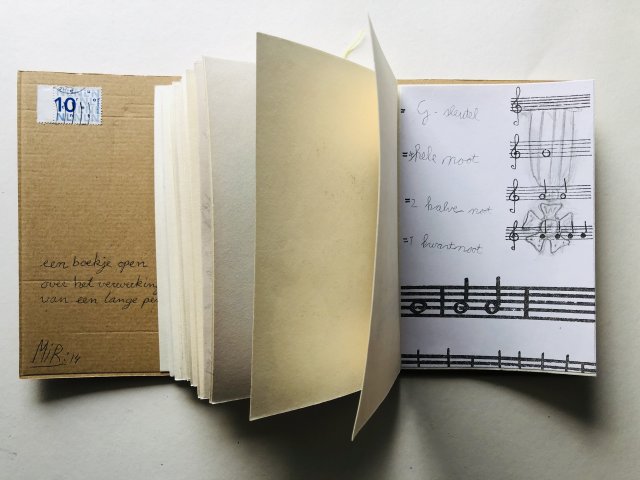 10
NL
een boekje open
over het verwerking
van een lange pe
MiR '14
= G - sleutel
= hele noot
= 2 halve not
= 1 kwartnoot